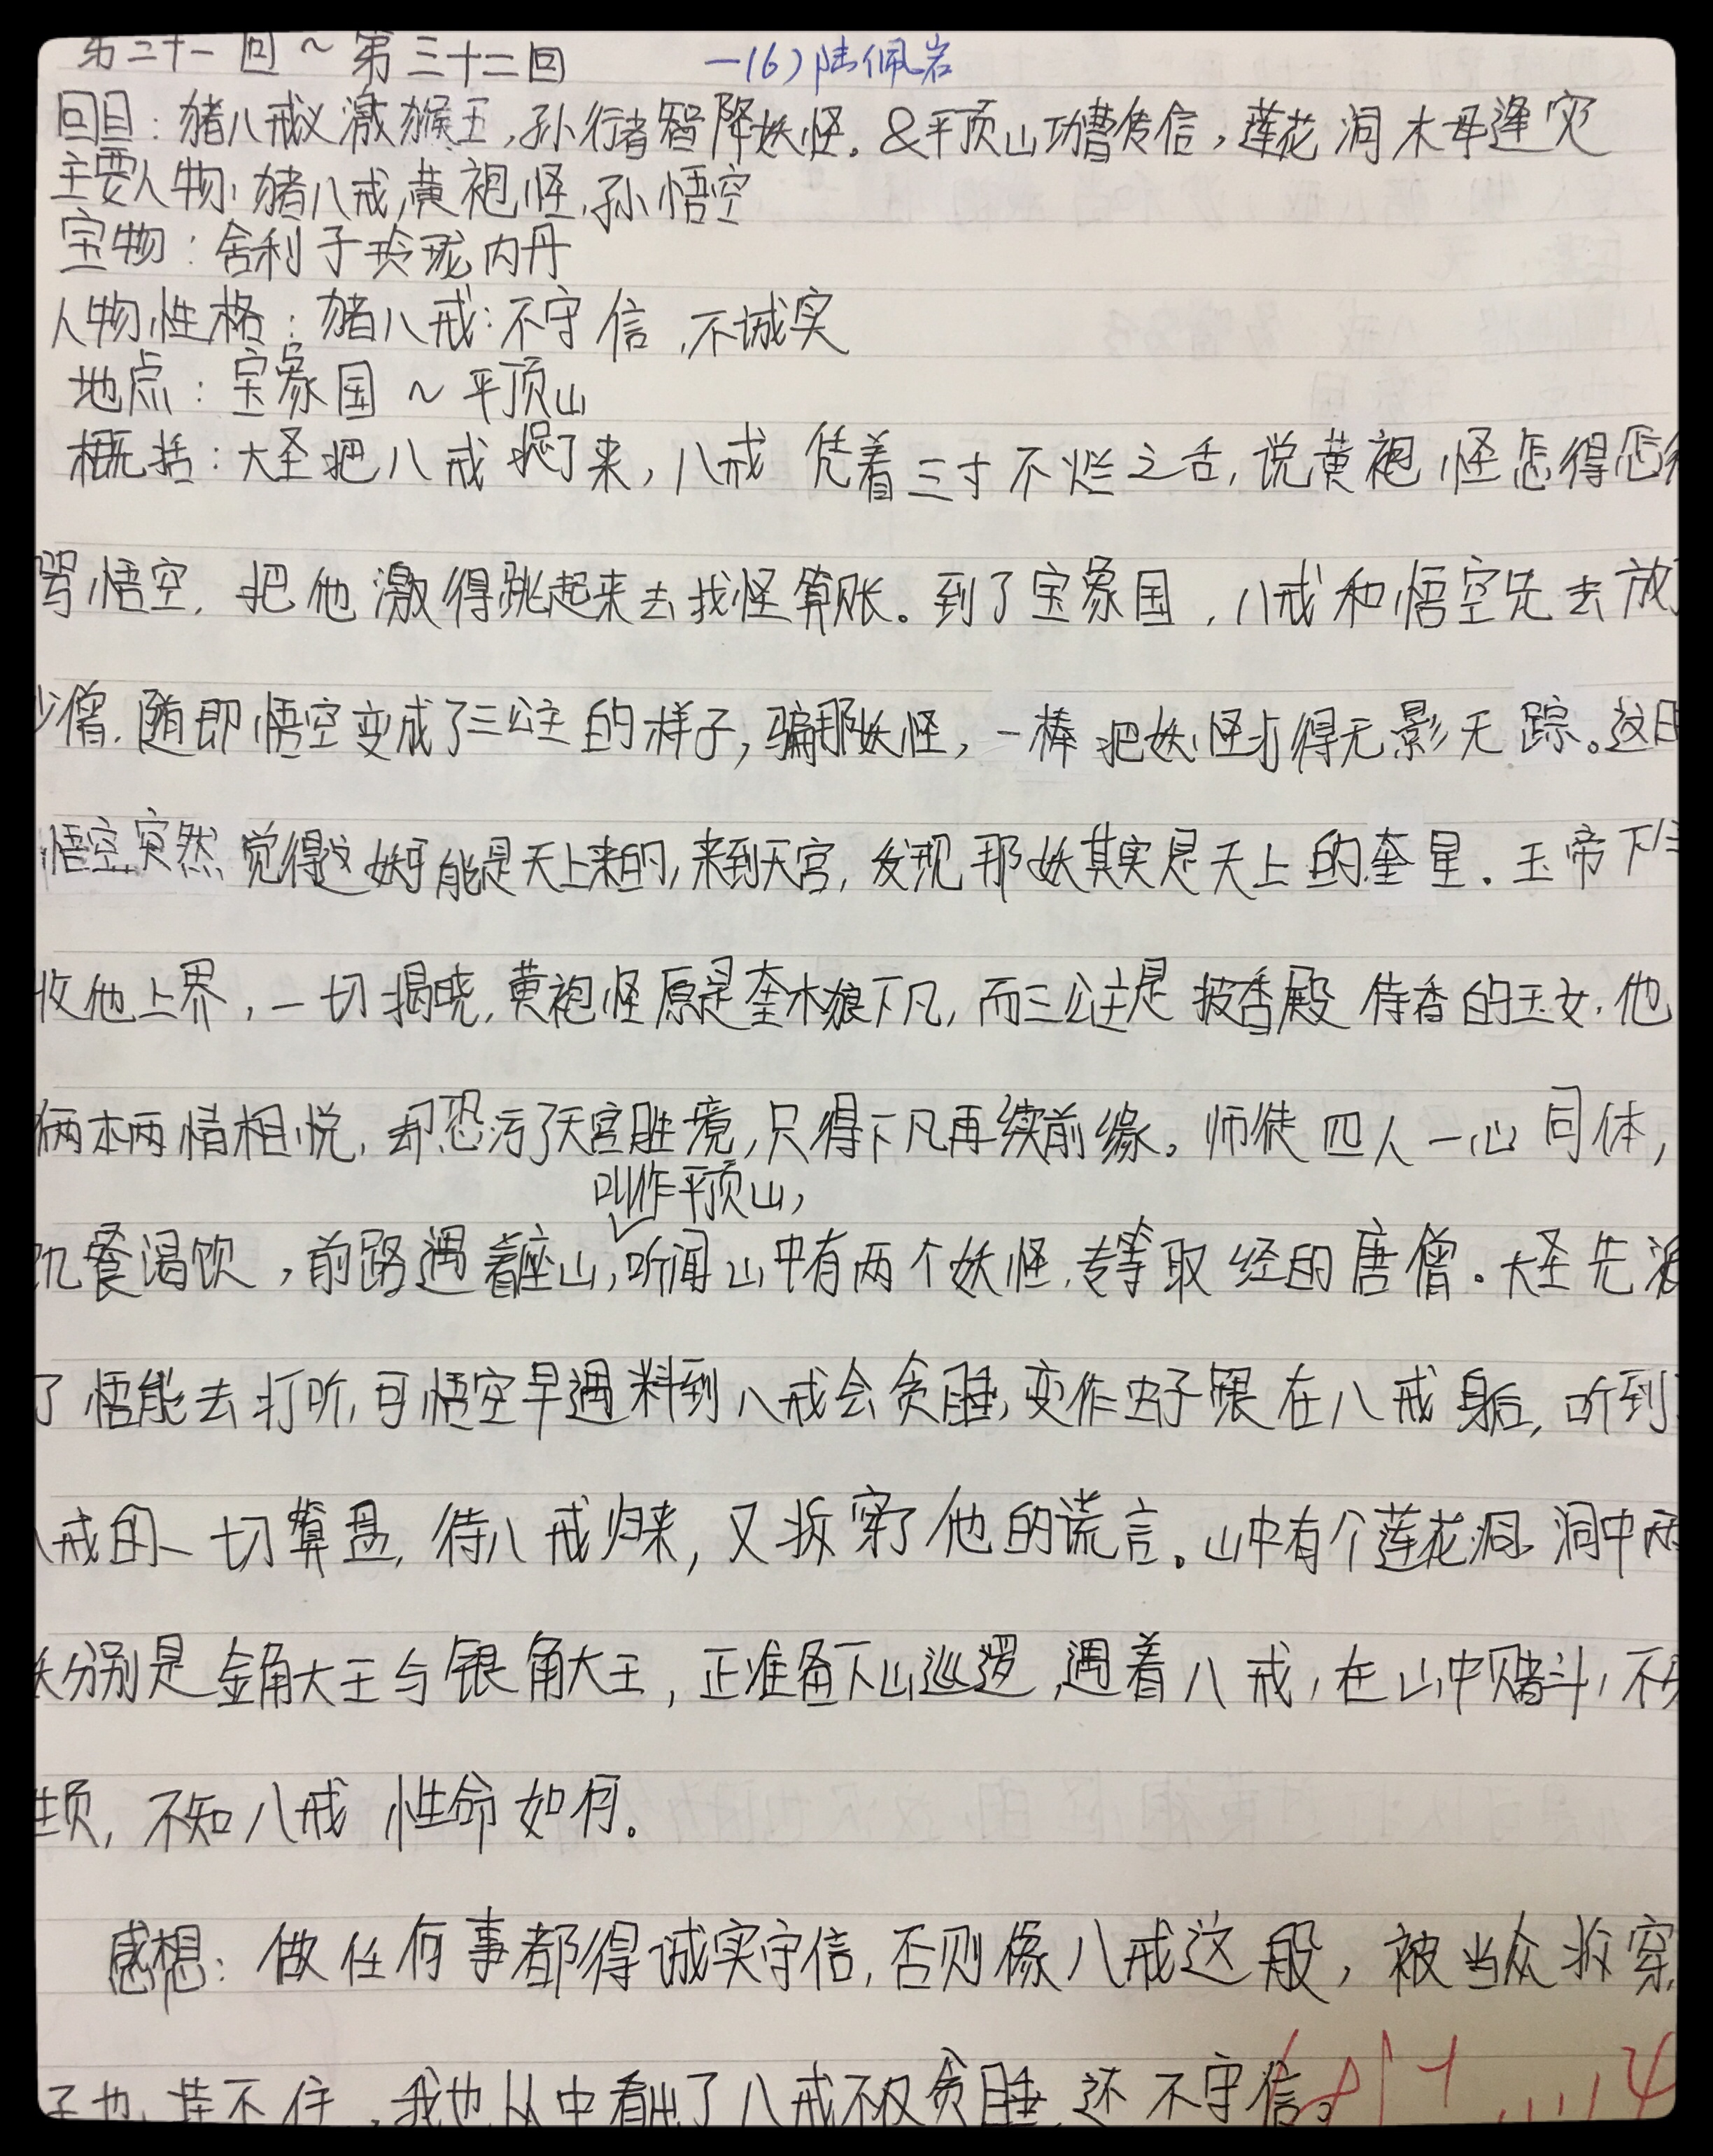 第三十一回～第三十二回 一(6)陆佩岩
回目：猪八戒义激猴王，孙行者智降妖怪。&平顶山功曹传信，莲花洞木母逢灾
主要人物：猪八戒，黄袍怪，孙悟空
宝物：舍利子玲珑内丹
人物性格：猪八戒：不守信，不诚实
地点：宝象国～平顶山
概括：大圣把八戒捉了来，八戒凭着三寸不烂之舌，说黄袍怪怎得怎得
骂悟空，把他激得跳起来去找怪算账。到了宝象国，八戒和悟空先去放了
沙僧，随即悟空变成了三公主的样子，骗那妖怪，一棒把妖怪打得无影无踪。这日
悟空突然觉得这妖可能是天上来的，来到天宫，发现那妖其实是天上的奎星。玉帝下
收他上界，一切揭晓，黄袍怪原是奎木狼下凡，而三公主是披香殿侍香的玉女，他
俩本两情相悦，却恐污了天宫胜境，只得下凡再续前缘。师徒四人一心同体，
叫作平顶山，
饥餐渴饮，前路遇着座山，听闻山中有两个妖怪，专等取经的唐僧。大圣先
了悟能去打听，可悟空早遇料到八戒会贪睡，变作虫子跟在八戒身后，听到
八戒的一切算盘，待八戒归来，又拆穿了他的谎言。山中有个莲花洞，洞中两
妖分别是金角大王与银角大王，正准备下山巡逻，遇着八戒，在山中赌斗，不
性负，不知八戒性命如何。
感想：做任何事都得诚实守信，否则像八戒这般，被当众拆穿，
子也挂不住，我也从中看出了八戒不仅贪睡，还不守信。